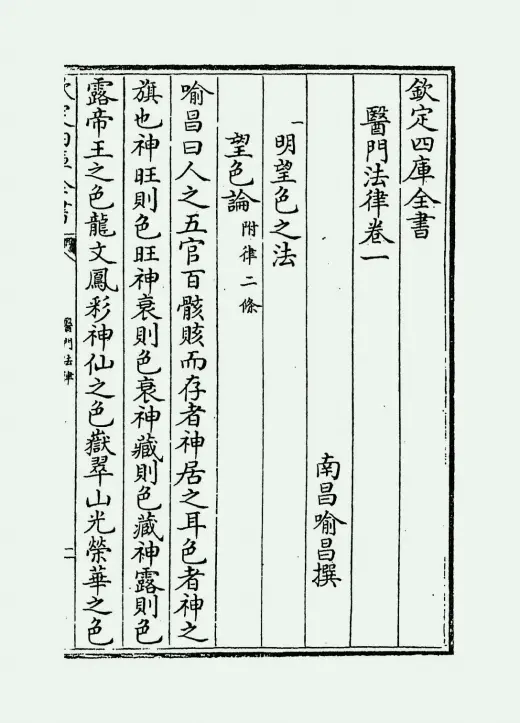 欽定四庫全書
醫門法律卷一
南昌喻昌撰
一明望色之法
望色論附律二條
喻昌曰人之五官百骸賅而存者神居之耳色者神之
旗也神旺則色旺神衰則色衰神藏則色藏神露則色
露帝王之色龍文鳳彩神仙之色嶽翠山光榮華之色
欽定四庫全書
醫門法律